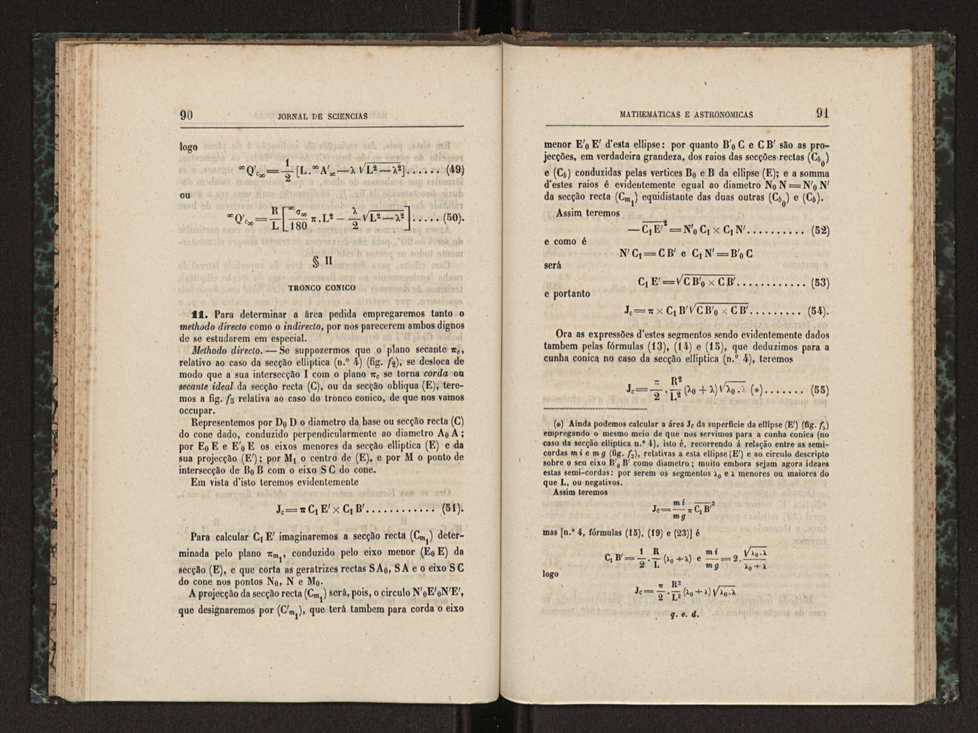 90 JORNAL DE SCIENCIAS
logo
∞Q′c∞ = 1/2 [L . ∞A′∞ — λ √(L² — λ²)] . . . . . . (49)
ou
∞Q′c∞ = R/L [∞σ∞/180 π . L² — λ/2 √(L² — λ²)] . . . . . (50).
§ II
TRONCO CONICO
11. Para determinar a área pedida empregaremos tanto o
methodo directo como o indirecto, por nos parecerem ambos dignos
de se estudarem em especial.
Methodo directo. — Se suppozermos que o plano secante πε,
relativo ao caso da secção elliptica (n.º 4) (fig. f2), se desloca de
modo que a sua intersecção I com o plano πc se torna corda ou
secante ideal da secção recta (C), ou da secção obliqua (E), tere-
mos a fig. f5 relativa ao caso do tronco conico, de que nos vamos
occupar.
Representemos por D0 D o diametro da base ou secção recta (C)
do cone dado, conduzido perpendicularmente ao diametro A0 A ;
por E0 E e E′0 E os eixos menores da secção elliptica (E) e da
sua projecção (E′) ; por M1 o centro de (E), e por M o ponto de
intersecção de B0 B com o eixo S C do cone.
Em vista d'isto teremos evidentemente
Jc = π C1 E′ × C1 B′ . . . . . . . . . . . . (51).
Para calcular C1 E′ imaginaremos a secção recta (Cm1) deter-
minada pelo plano πm1, conduzido pelo eixo menor (E0 E) da
secção (E), e que corta as geratrizes rectas SA0, SA e o eixo S C
do cone nos pontos N0, N e M0.
A projecção da secção recta (Cm1) será, pois, o circulo N′0E′0N′E′,
que designaremos por (C′m1), que terá tambem para corda o eixo
MATHEMATICAS E ASTRONOMICAS 91
menor E′0 E′ d'esta ellipse : por quanto B′0 C e C B′ são as pro-
jecções, em verdadeira grandeza, dos raios das secções rectas (Cb0)
e (Cb) conduzidas pelas vertices B0 e B da ellipse (E); e a somma
d'estes raios é evidentemente egual ao diametro N0 N = N′0 N′
da secção recta (Cm1) equidistante das duas outras (Cb0) e (Cb).
Assim teremos
— C1E′² = N′0 C1 × C1 N′ . . . . . . . . . . (52)
e como é
N′ C1 = C B′ e C1 N′ = B′0 C
será
C1 E′ = √(C B′0 × C B′) . . . . . . . . . . . . (53)
e portanto
Jc = π × C1 B′ √(C B′0 × C B′) . . . . . . . . . (54).
Ora as expressões d'estes segmentos sendo evidentemente dados
tambem pelas fórmulas (13), (14) e (15), que deduzimos para a
cunha conica no caso da secção elliptica (n.º 4), teremos
Jc = π/2 . R²/L² (λ0 + λ) √(λ0 . λ) (*) . . . . . . . (55)
(*) Ainda podemos calcular a área Jc da superficie da ellipse (E′) (fig. f5)
empregando o mesmo meio de que nos servimos para a cunha conica (no
caso da secção elliptica n.º 4), isto é, recorrendo á relação entre as semi-
cordas m i e m g (fig. f2), relativas a esta ellipse (E′) e ao circulo descripto
sobre o seu eixo B′0 B′ como diametro ; muito embora sejam agora ideaes
estas semi-cordas : por serem os segmentos λ0 e λ menores ou maiores do
que L, ou negativos.
Assim teremos
Jc = m i/m g π C1 B′²
mas [n.º 4, fórmulas (15), (19) e (23)] é
C1 B′ = 1/2 . R/L (λ0 + λ) e m i/m g = 2 . √(λ0 . λ)/(λ0 + λ)
logo
Jc = π/2 . R²/L² (λ0 + λ) √(λ0 . λ)
q. e. d.